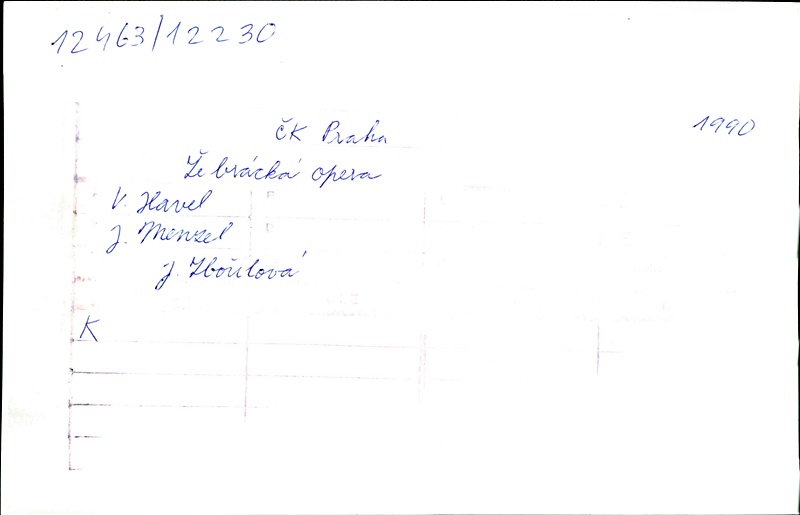 12463/12230
ČK Praha
1990
Žebrácká opera
V. Havel
J. Menzel
J. Zbořilová
K